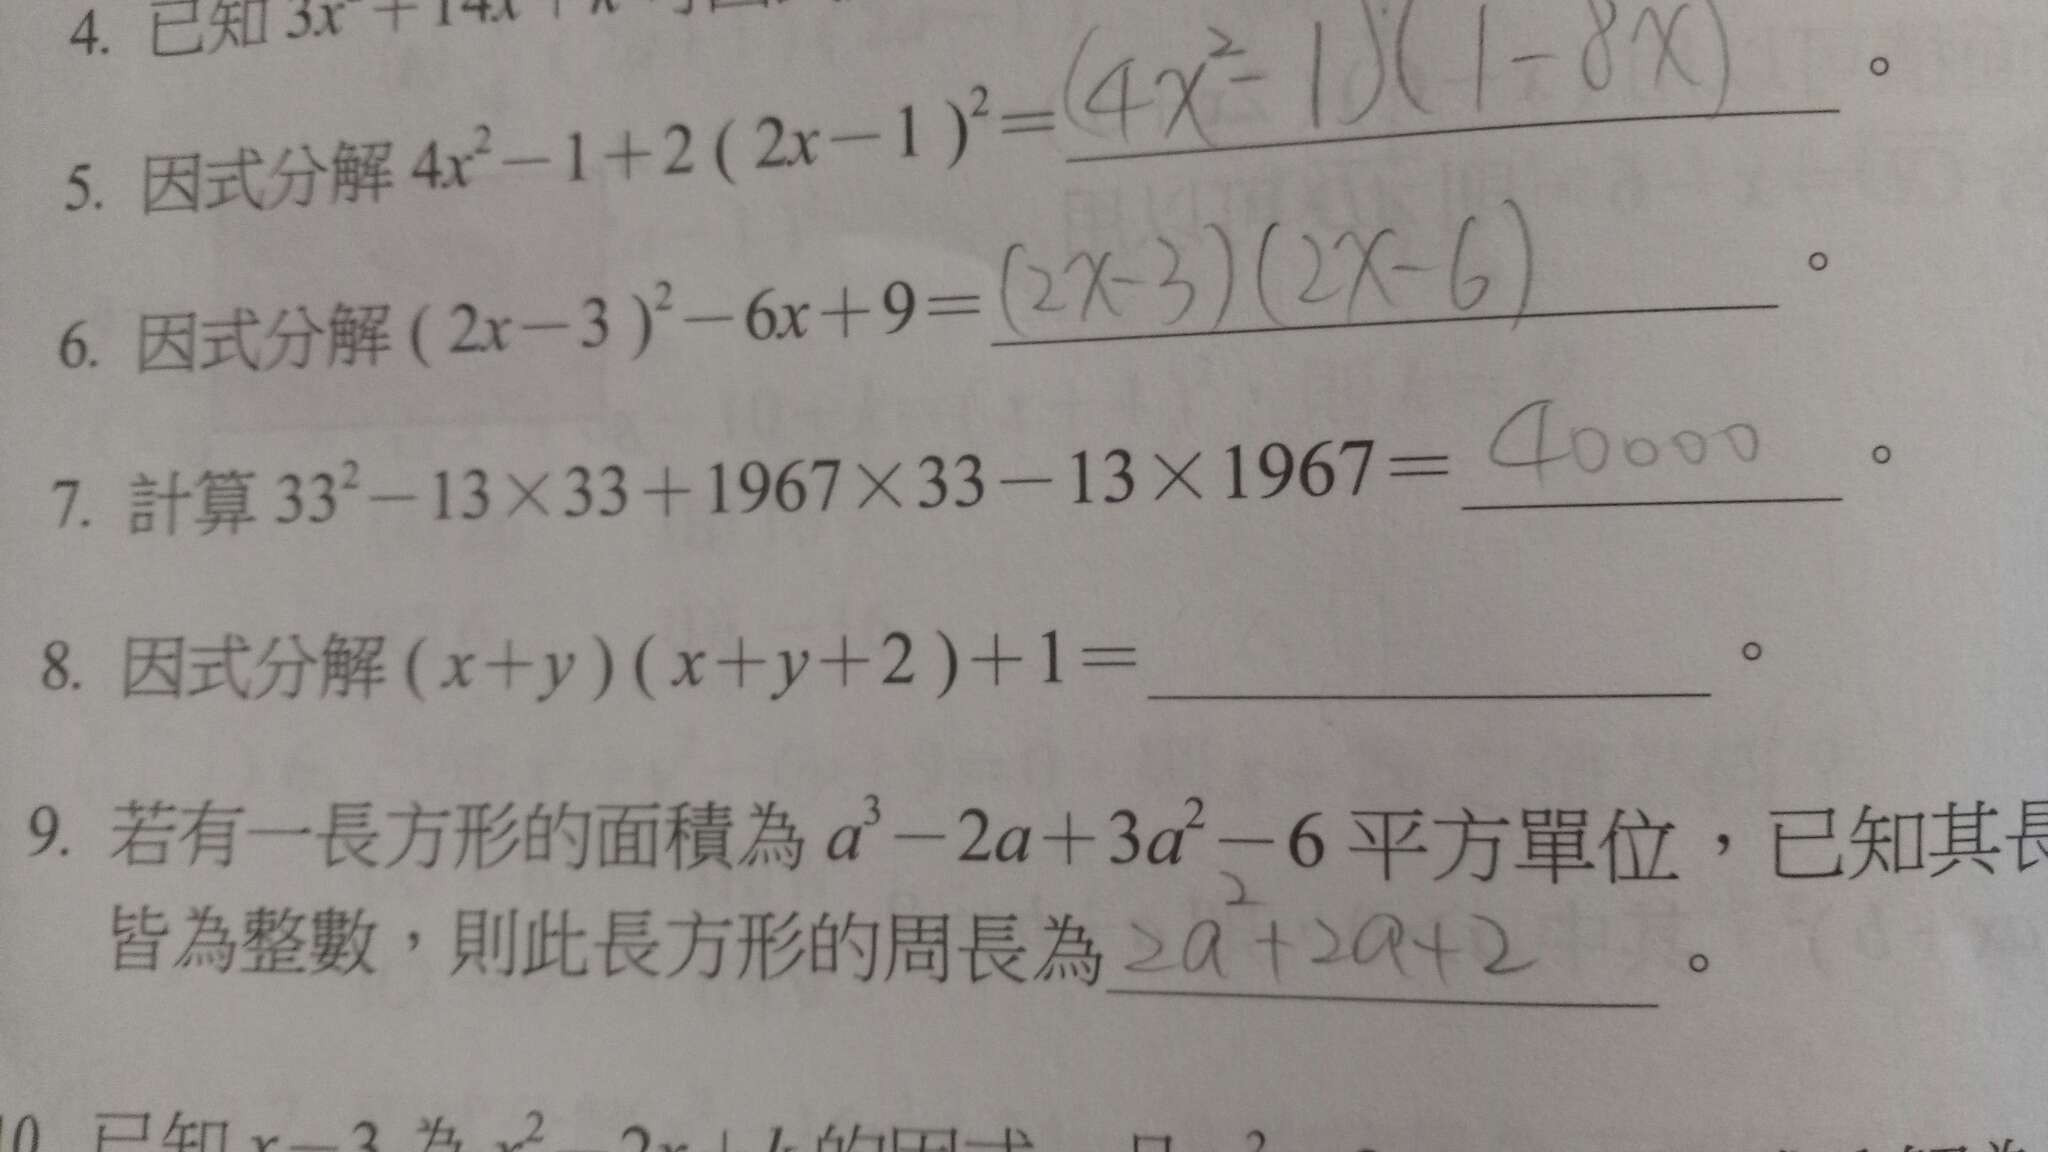 4. 已知 3x² + 14x + k
5. 因式分解 4x²－1＋2（2x－1）²＝(4x²-1)(1-8x)。
6. 因式分解（2x－3）²－6x＋9＝(2x-3)(2x-6)。
7. 計算 33²－13×33＋1967×33－13×1967＝40000。
8. 因式分解（x＋y）（x＋y＋2）＋1＝。
9. 若有一長方形的面積為 a³－2a＋3a²－6 平方單位，已知其長
皆為整數，則此長方形的周長為2a²+2a+2。
10. 已知 x－3 為 x²－2x＋k 的因式